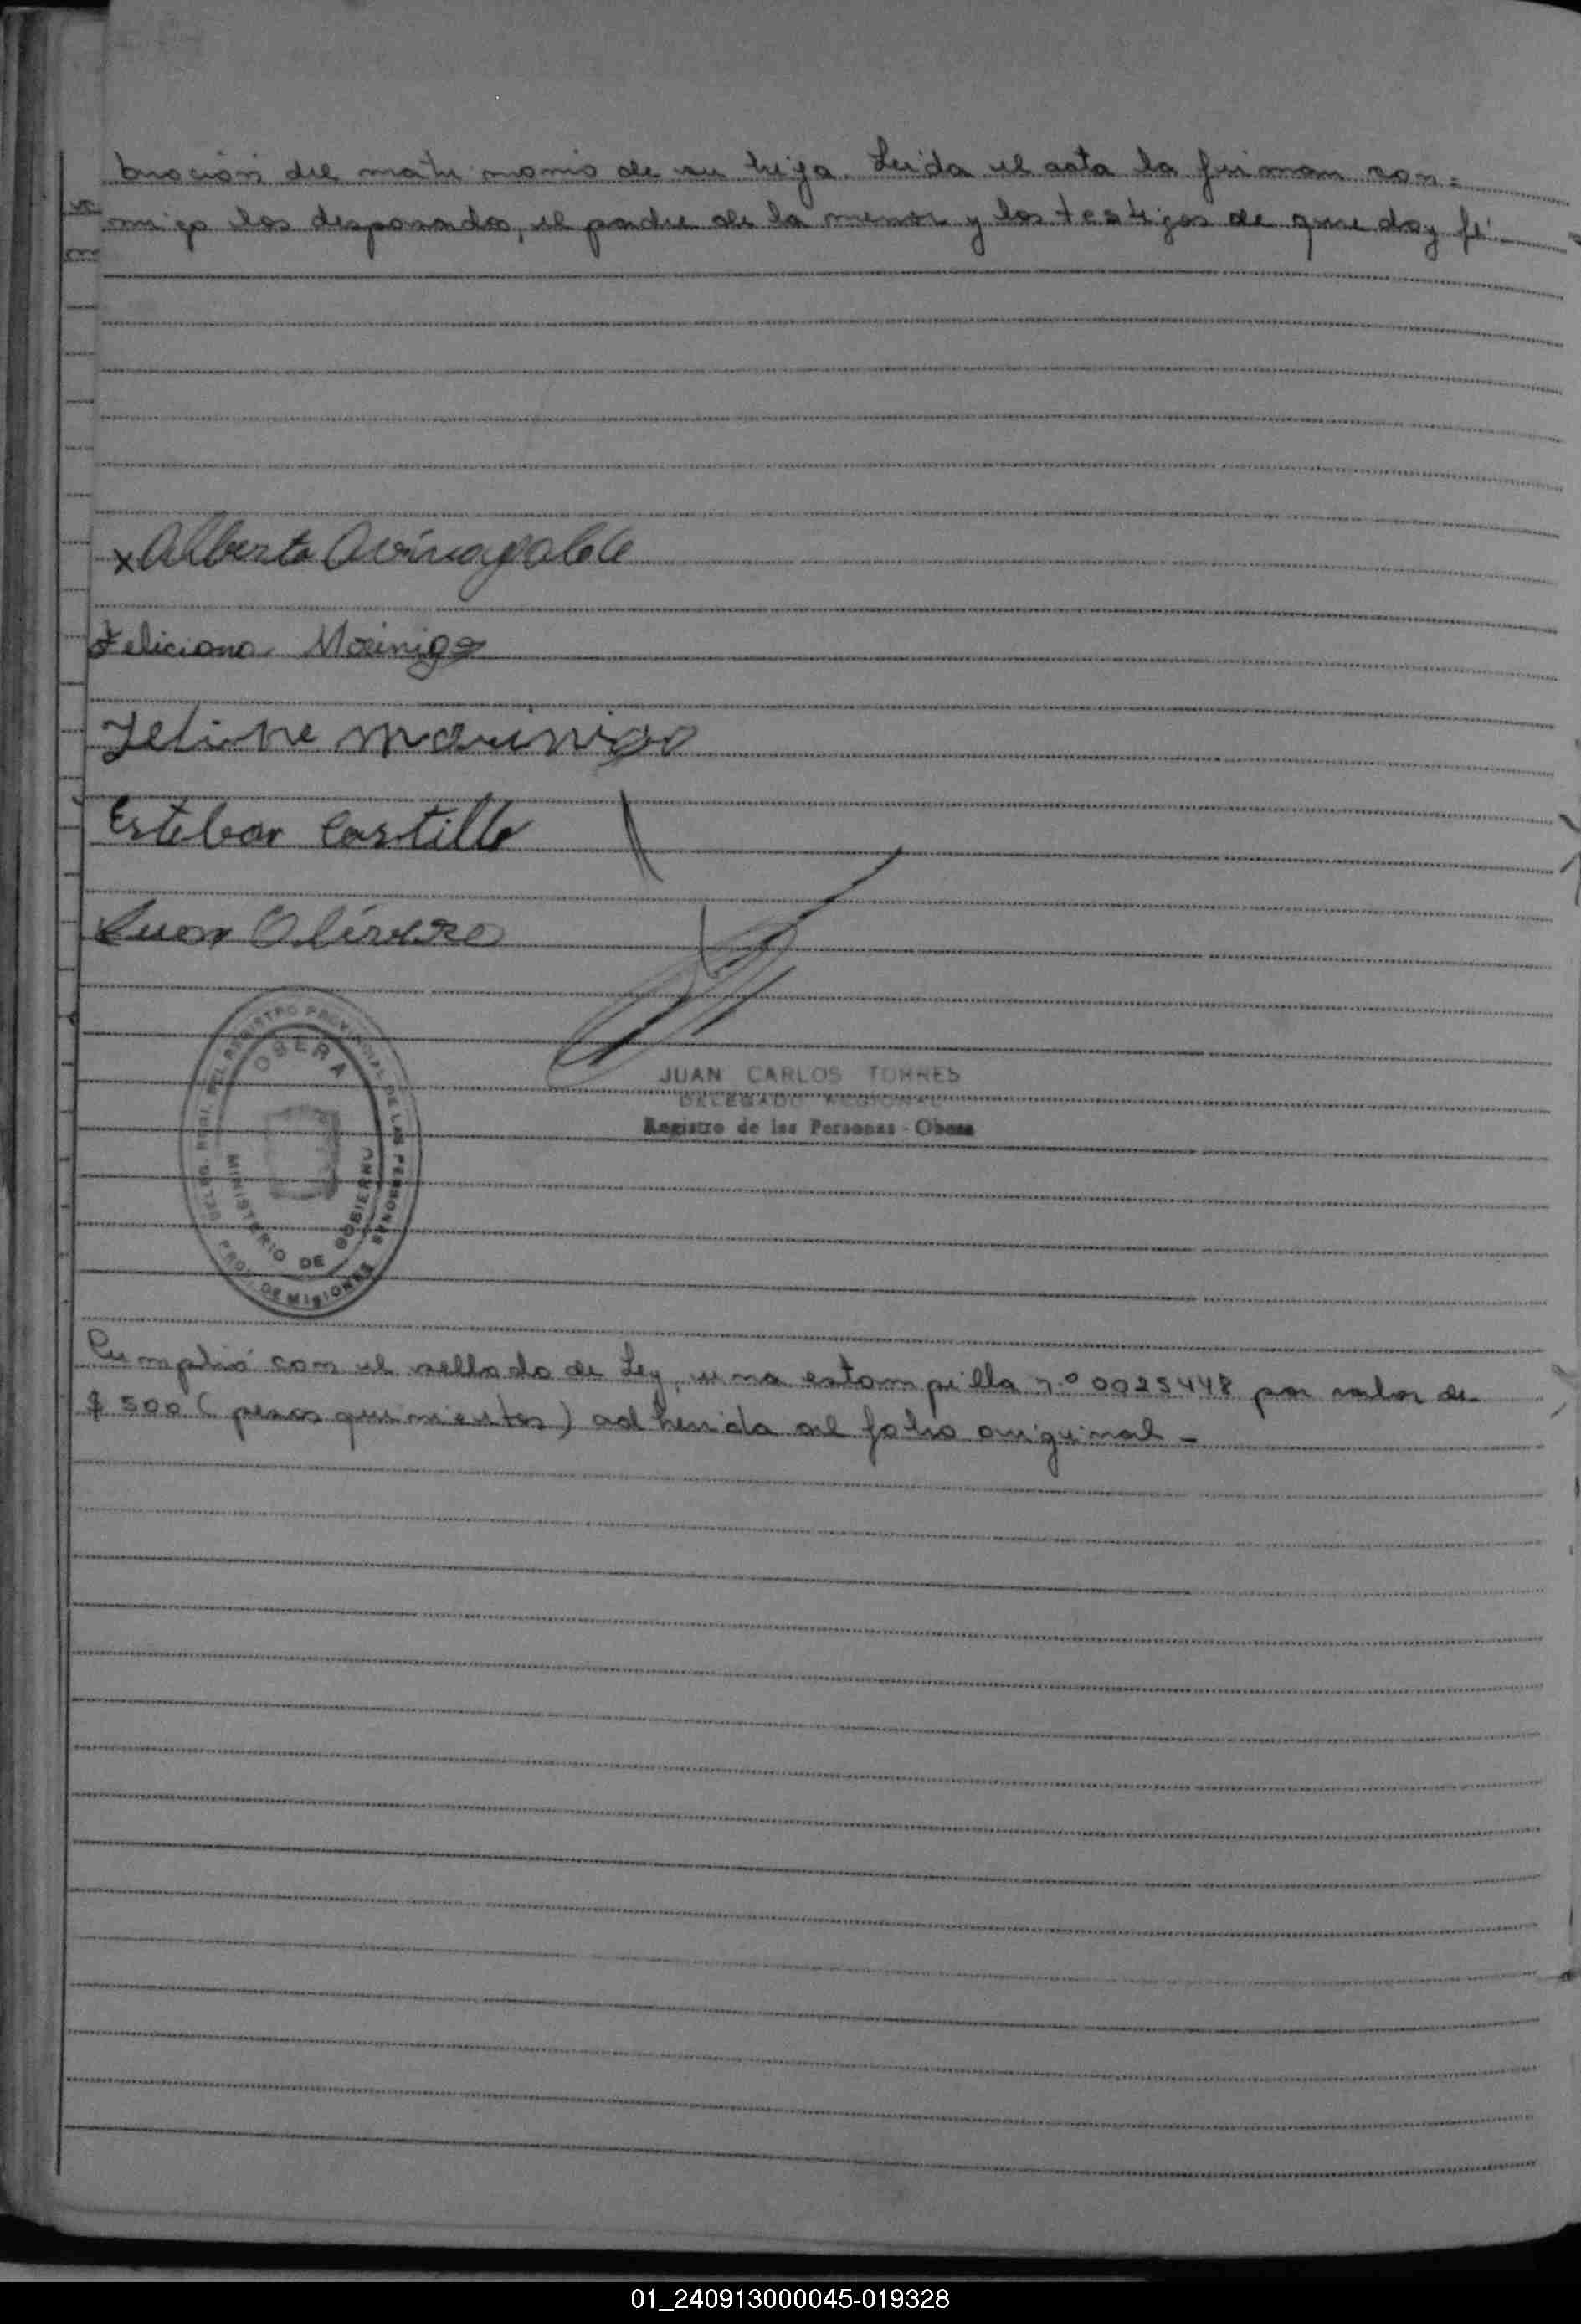 bración del matrimonio de su hija. Leida el acta la firman con=
migo los desposados, el padre de la menor y los testigos de que doy fé
x Alberto
Feliciana Mainigo
Felipe mainigo
Esteban Castillo
Juan Olivera
DELEG. REGI. DEL REGISTRO PROVINCIAL DE LAS PERSONAS
OBERA
MINISTERIO DE GOBIERNO
PROV. DE MISIONES
JUAN CARLOS TORRES
DELEGADO REGIONAL
Registro de las Personas - Obera
Cumplió con el sellado de Ley, una estampilla n.º 0025448 por valor de
$ 500 (pesos quinientos) adherida al folio original -
01_240913000045-019328